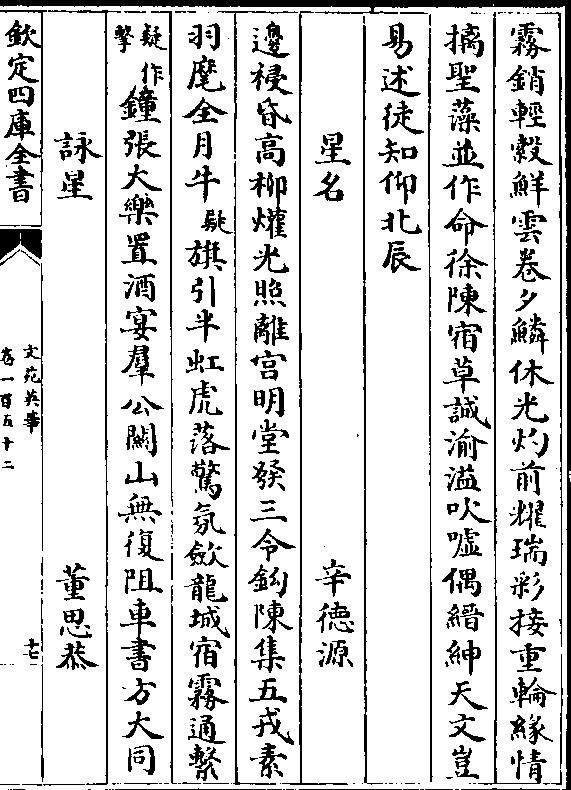 霧銷輕縠鮮雲卷夕鱗休光灼前耀瑞彩接重輪緣情
摛聖藻並作命徐陳宿草誠渝溢吹噓偶縉紳天文豈
易述徒知仰北辰
星名 辛德源
邊祲昏高柳爟光照離宮明堂發三令鈎陳集五戎素
羽麾全月牛疑旗引半虹虎落驚氛歛龍城宿霧通繫
疑作擊鐘張大樂置酒宴羣公關山無復阻車書方大同
詠星 董思恭
欽定四庫全書
文苑英華
卷一百五十二
十七